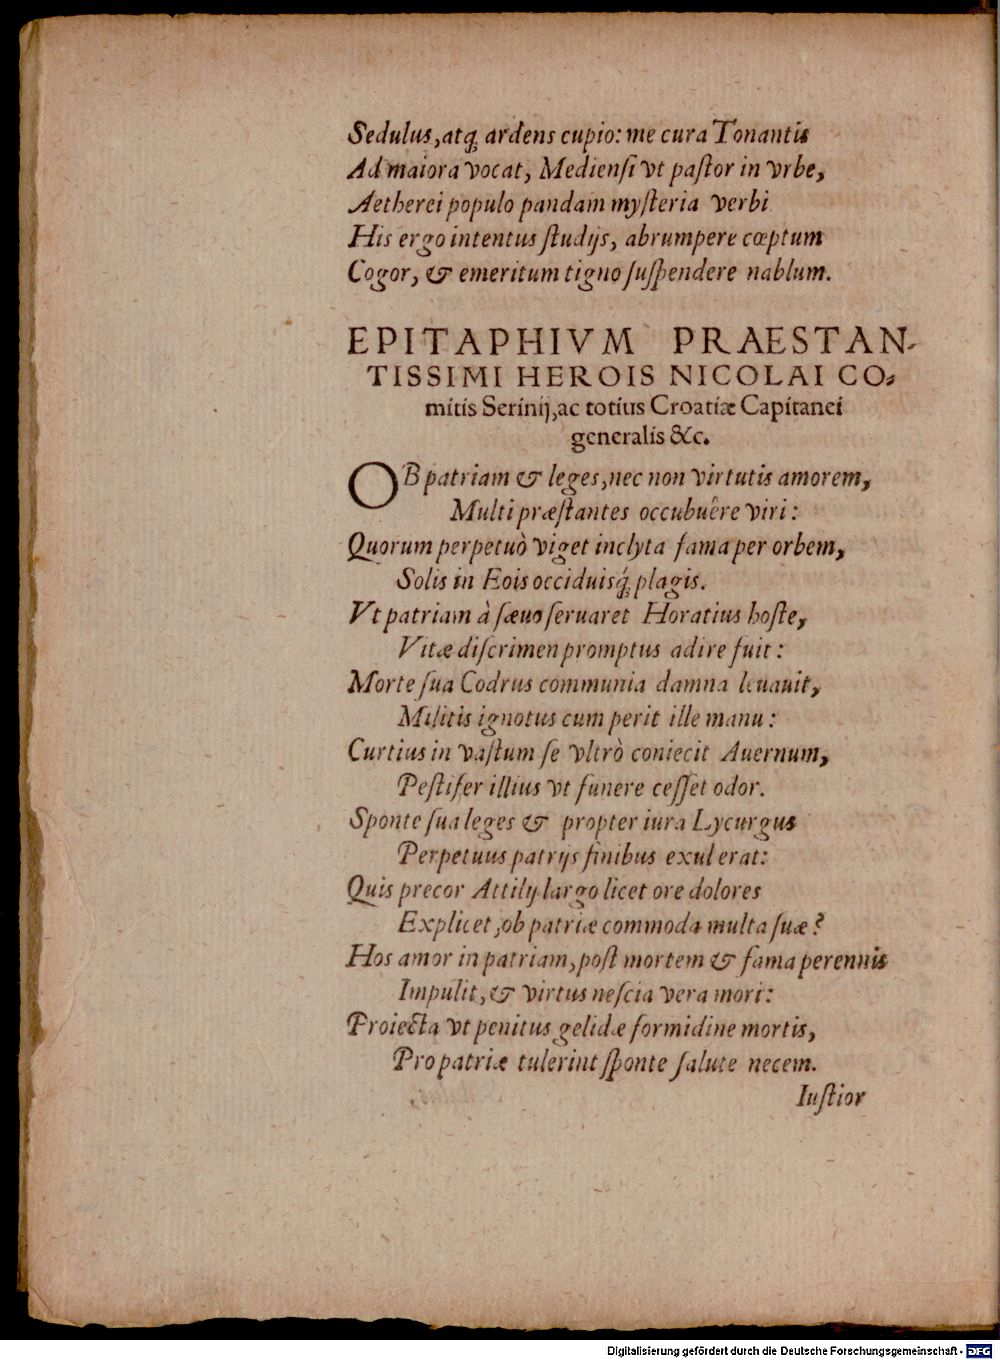 Sedulus, atq́ꝫ ardens cupio: me cura Tonantis
Ad maiora vocat, Mediensi vt pastor in vrbe,
Aetherei populo pandam mysteria verbi
His ergo intentus studijs, abrumpere cœptum
Cogor, & emeritum tigno suspendere nablum.
EPITAPHIVM PRAESTAN-
TISSIMI HEROIS NICOLAI CO-
mitis Serinij, ac totius Croatiæ Capitanei
generalis &c.
OB patriam & leges, nec non virtutis amorem,
Multi præstantes occubuêre viri:
Quorum perpetuò viget inclyta fama per orbem,
Solis in Eois occiduisq́ꝫ plagis.
Vt patriam à sæuo seruaret Horatius hoste,
Vitæ discrimen promptus adire fuit:
Morte sua Codrus communia damna leuauit,
Militis ignotus cum perit ille manu:
Curtius in vastum se vltrò coniecit Auernum,
Pestifer illius vt funere cesset odor.
Sponte sua leges & propter iura Lycurgus
Perpetuus patrijs finibus exul erat:
Quis precor Attilij largo licet ore dolores
Explicet, ob patriæ commoda multa suæ?
Hos amor in patriam, post mortem & fama perennis
Impulit, & virtus nescia vera mori:
Proiecta vt penitus gelidæ formidine mortis,
Pro patriæ tulerint sponte salute necem.
Iustior
Digitalisierung gefördert durch die Deutsche Forschungsgemeinschaft - DFG